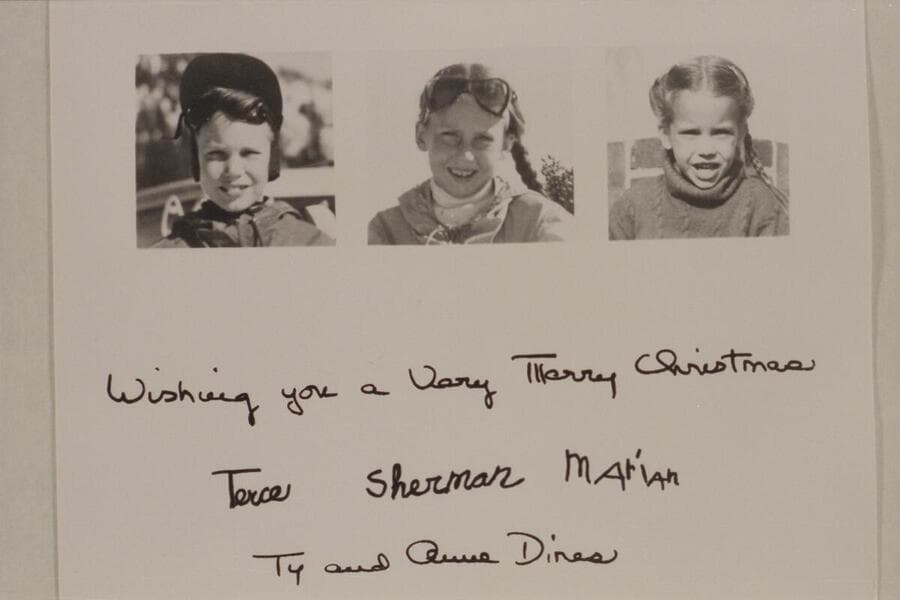 Wishing you a Very Merry Christmas
Terce Sherman Marian
Ty and Anne Dines